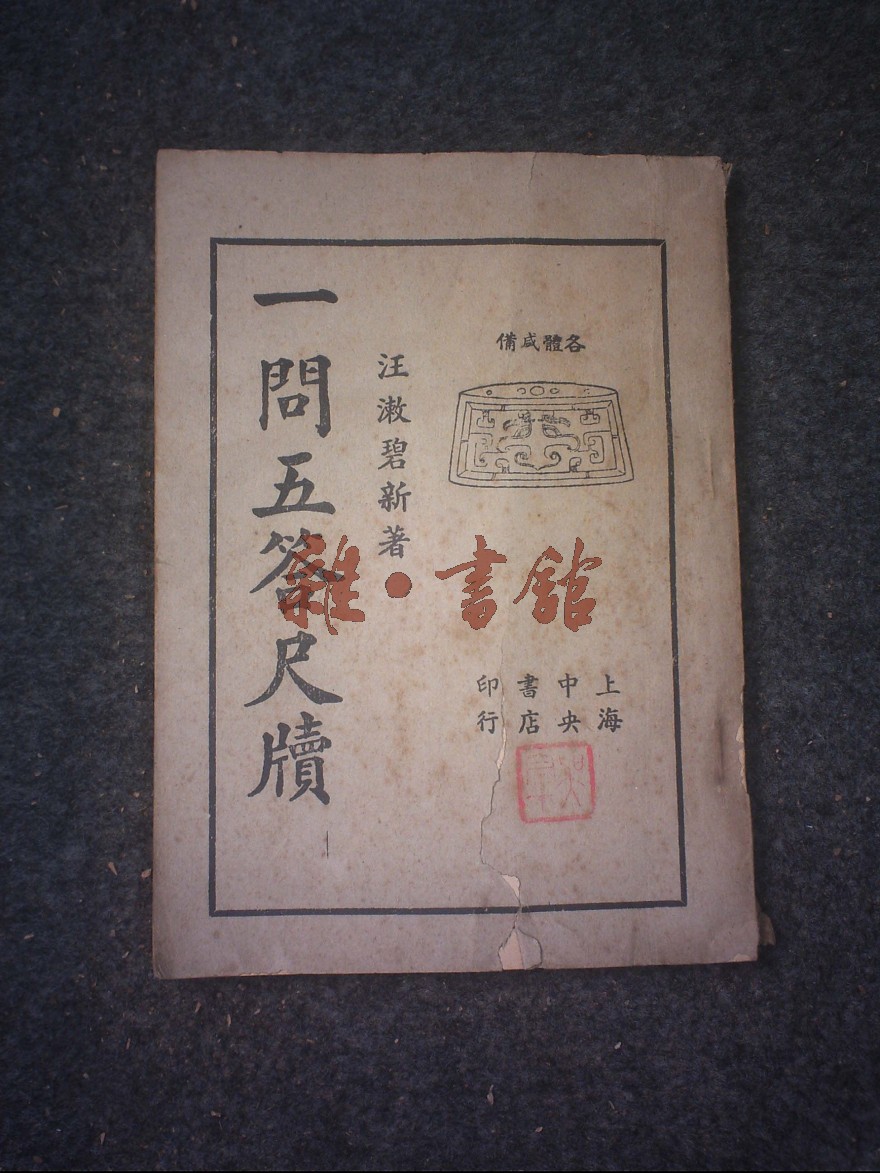 各體咸備
汪漱碧新著
一問五答尺牘
上海
中央
書店
印行
雜·書館